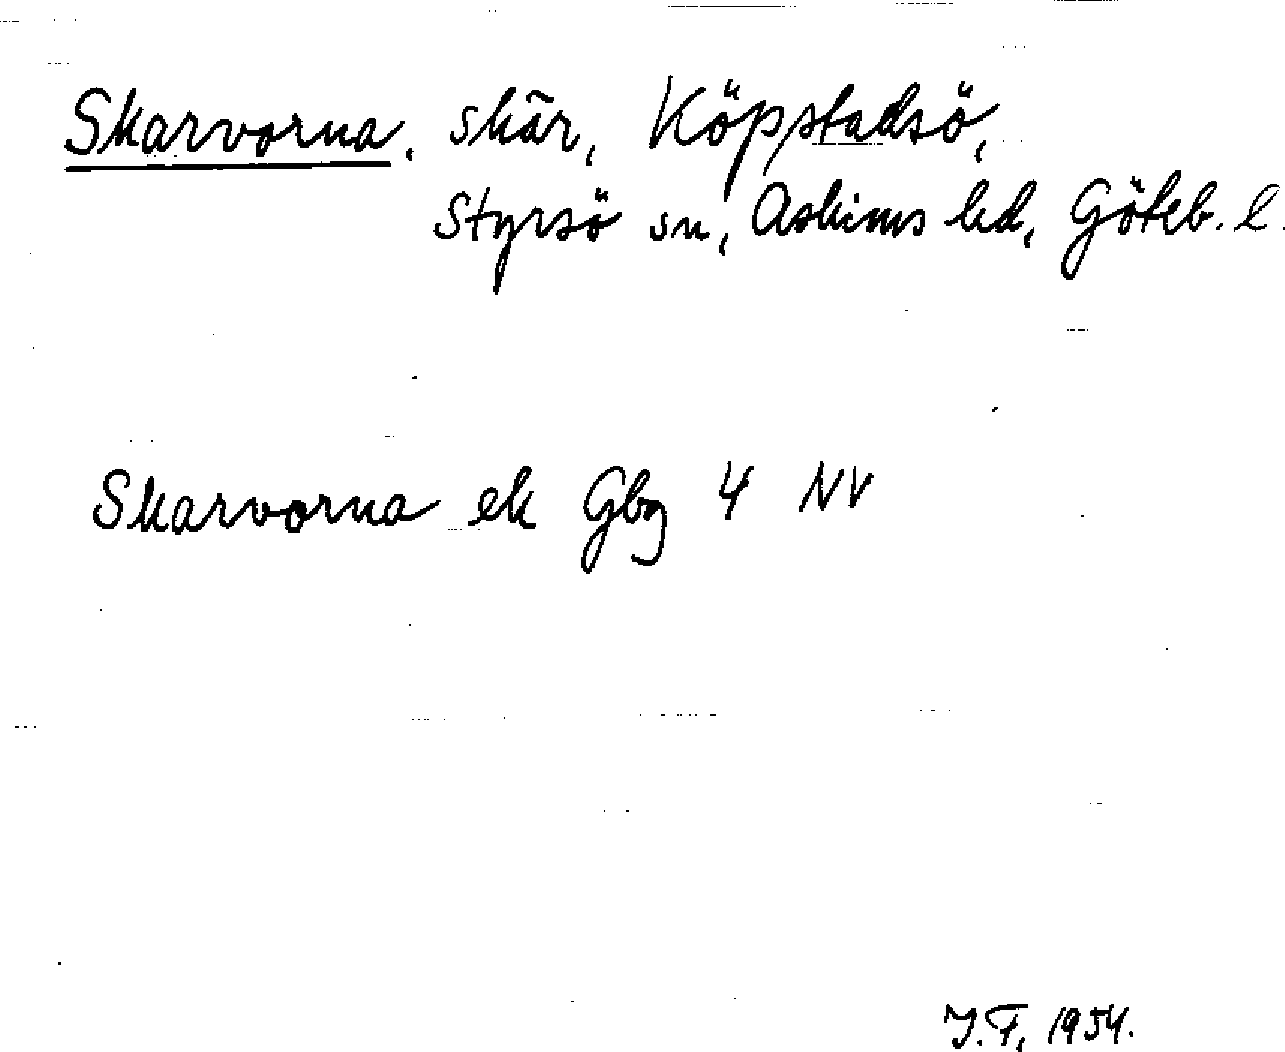 Skarvorna, skär, Köpstadsö,
Styrsö sn, Askims hd, Göteb. l.
Skarvorna ek Gbg 4 NV
J.F, 1954.